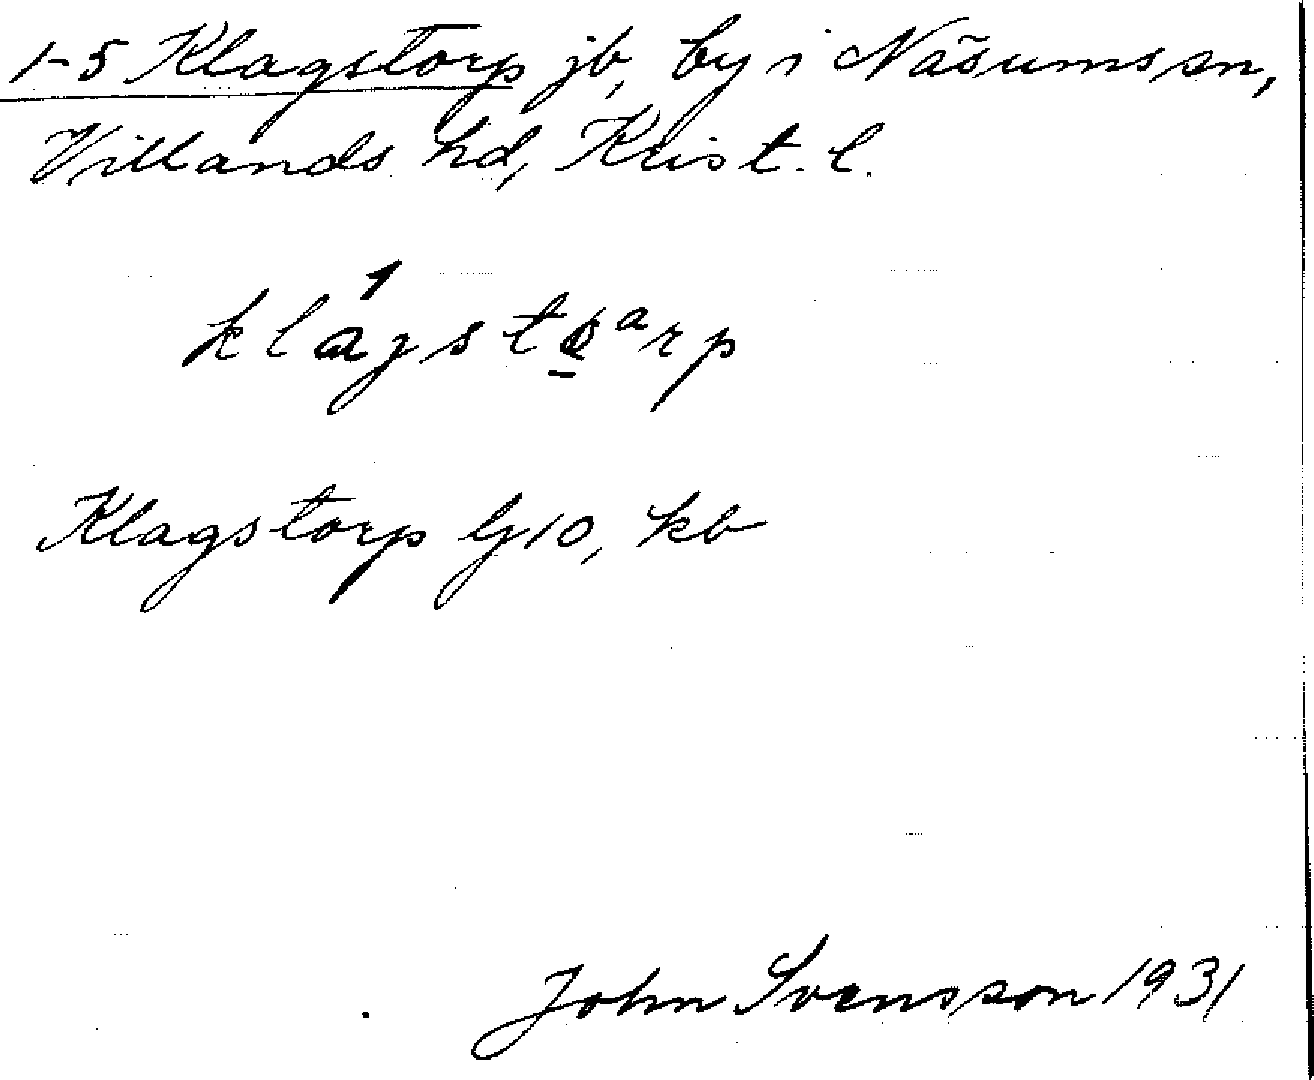 1-5 Klagstorp jb, by i Näsums sn,
Villands hd, Krist. l.
Klagstorp G10, kb
John Svensson 1931